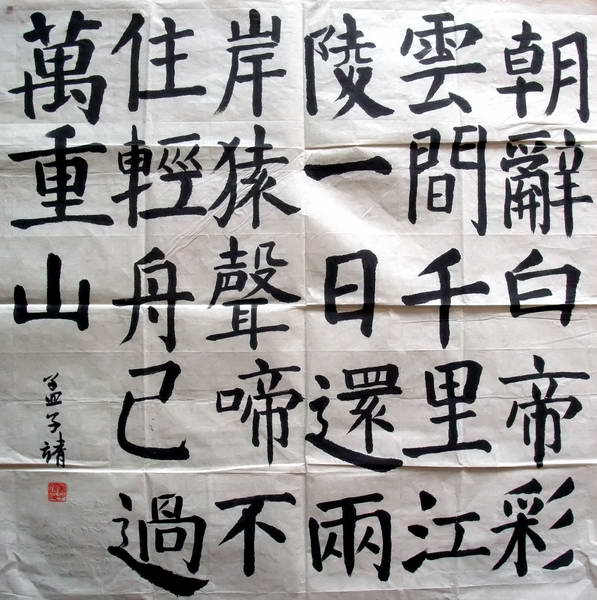 朝辭白帝彩
雲間千里江
陵一日還兩
岸猿聲啼不
住輕舟已過
萬重山
孟子靖